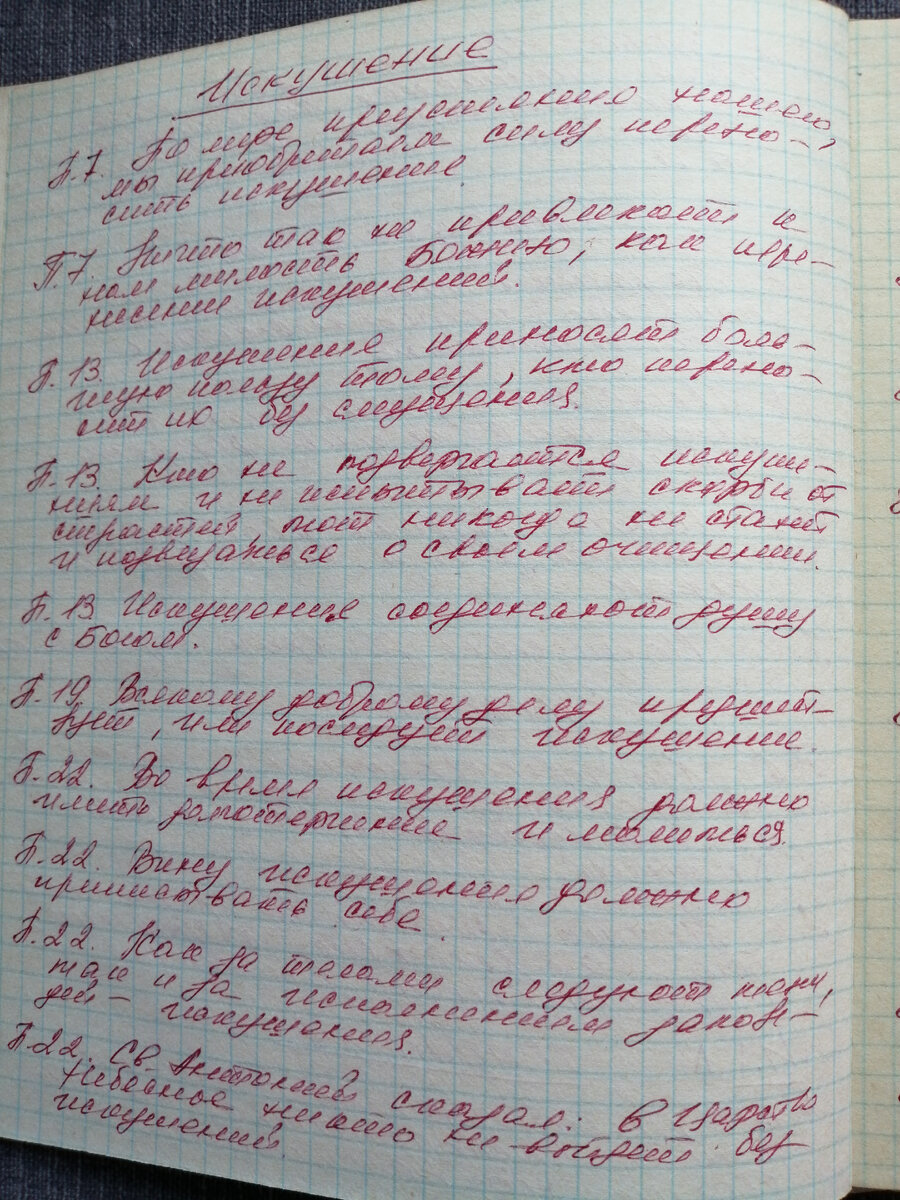 Искушение
П.7. По мере преуспеяния нашего,
мы приобретаем силу перено-
сить искушение.
П.7. Ничто так не привлекает к
нам милость Божию, как пере-
несение искушений.
П.13. Искушения приносят боль-
шую пользу тому, кто перено-
сит их без смущения.
П.13. Кто не подвергается искуше-
ниям и не испытывает скорби от
страстей, тот никогда не станет
и подвизаться о своём очищении.
П.13. Искушения соединяют душу
с Богом.
П.19. Всякому доброму делу предшест-
вует, или последует искушение.
П.22. Во время искушения должно
иметь долготерпение и молиться.
П.22. Вину искушения должно
приписывать себе.
П.22. Как за телами следуют тени,
так и за исполнением запове-
дей – искушения.
П.22. Св. Антоний сказал: в Царство
Небесное никто не войдет без
искушений